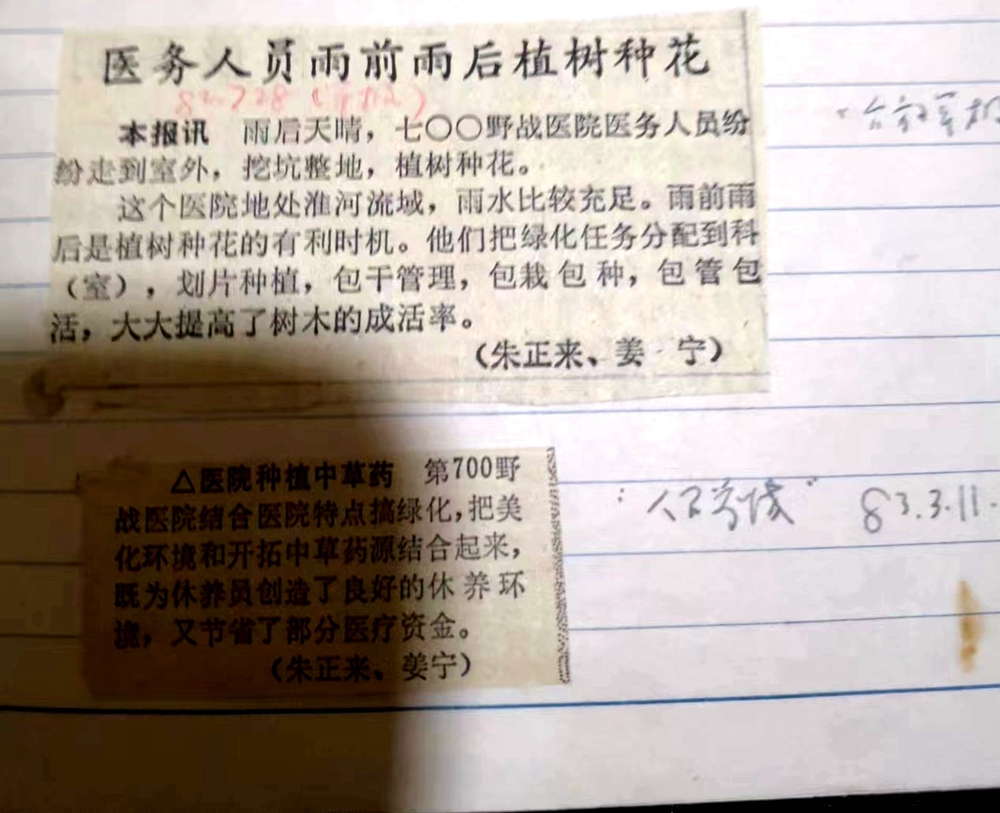 医务人员雨前雨后植树种花
本报讯 雨后天晴，七〇〇野战医院医务人员纷
纷走到室外，挖坑整地，植树种花。
这个医院地处淮河流域，雨水比较充足。雨前雨
后是植树种花的有利时机。他们把绿化任务分配到科
（室），划片种植，包干管理，包栽包种，包管包
活，大大提高了树木的成活率。
（朱正来、姜 宁）
△医院种植中草药 第700野
战医院结合医院特点搞绿化，把美
化环境和开拓中草药源结合起来，
既为休养员创造了良好的休养环
境，又节省了部分医疗资金。
（朱正来、姜宁）
83.3.11.